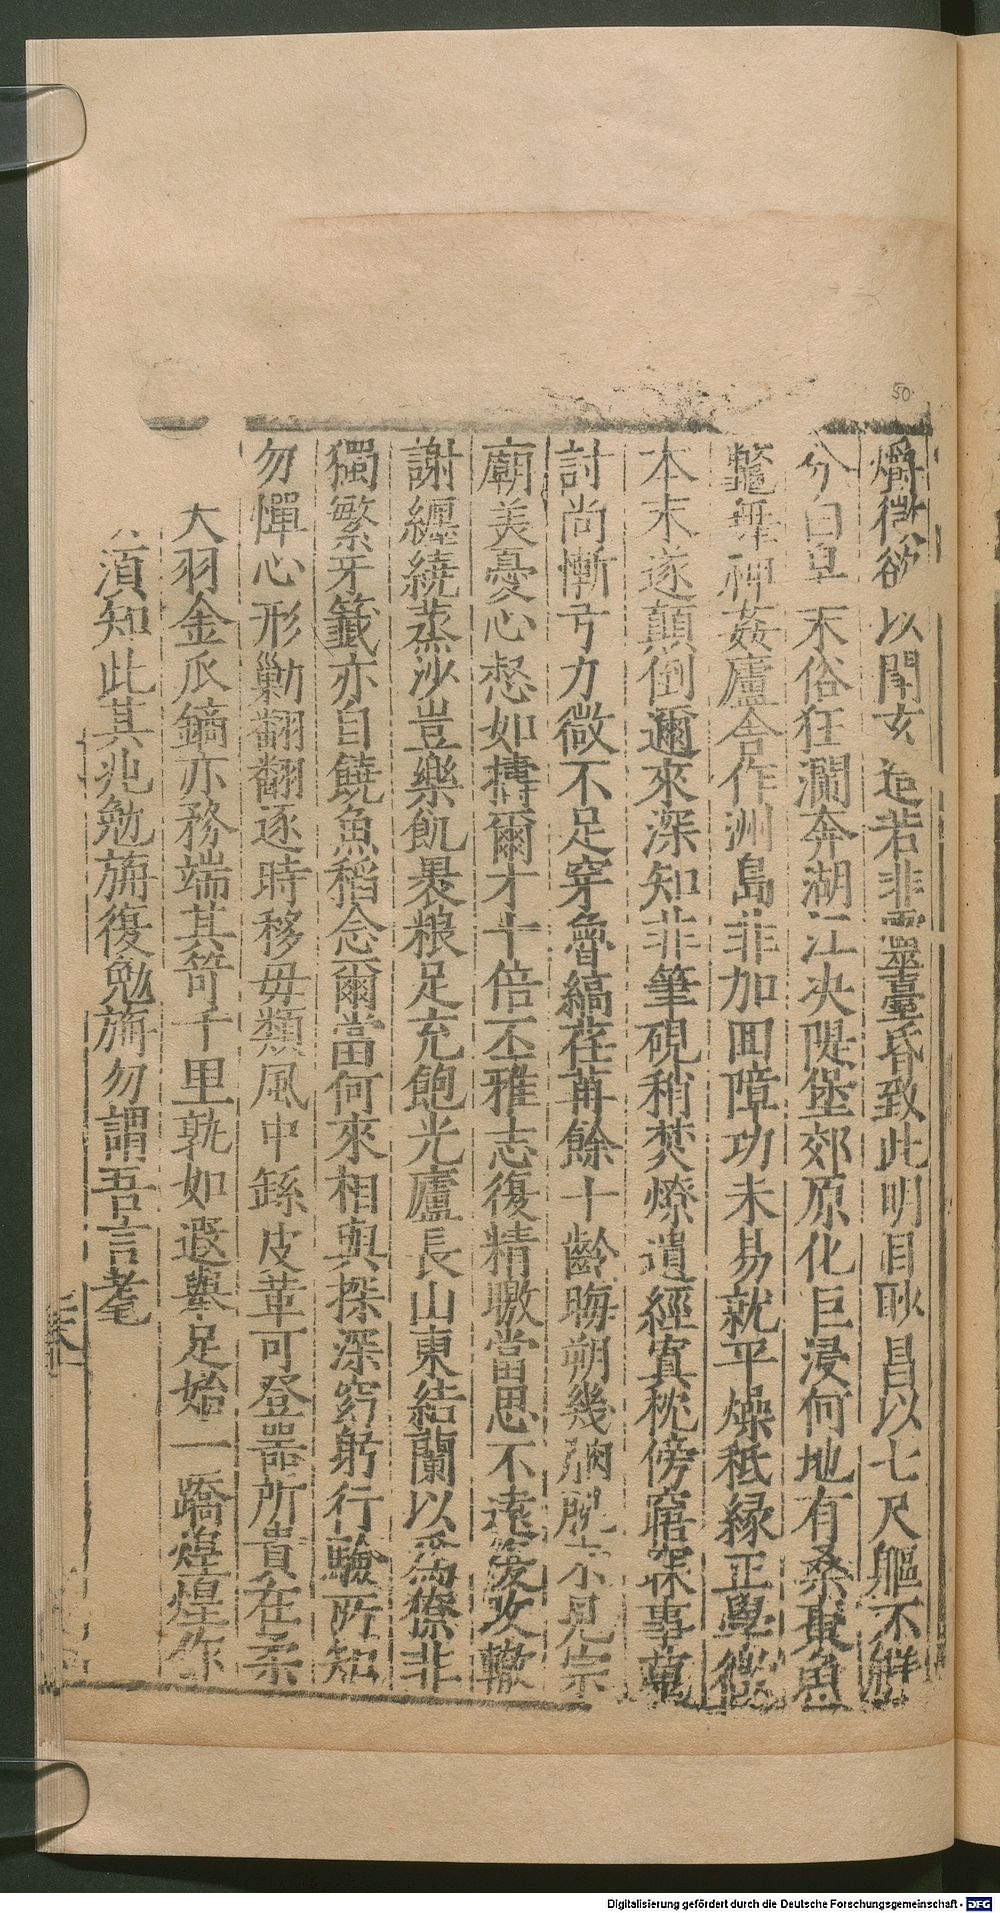 爝微欲以闖玄造若非靈臺昏致此明目眇昌以七尺軀不鮮
分白皁末俗狂瀾奔湖江決隄堡郊原化巨浸何地有桑棗魚
鼈舞神姦廬舍作洲島非加回障功未易就平燥秪緣正學
本末遂顛倒邇來深知非筆硯稍焚燎遺經寘枕傍寤寐事
討尚慚弓力微不足穿魯縞荏苒餘十齡晦朔幾朒朓未見宗
廟美憂心惄如擣爾才十倍丕雅志復精曒當思不遠筊攻轍
謝纏繞蒸沙豈樂飢裹粮足充飽光廬長山東結蘭以爲僚非
獨繁牙籤亦自饒魚稻念爾當何來相與探深窈躬行驗所知
勿憚心形勦翻翻逐時移毋類風中緐皮革可登器所貴在柔
大羽金爪鏑亦務端其笴千里孰如遐舉足始一蹻煌煌作
須知此其兆勉旃復勉旃勿謂吾言耄
50
Digitalisierung gefördert durch die Deutsche Forschungsgemeinschaft - DFG